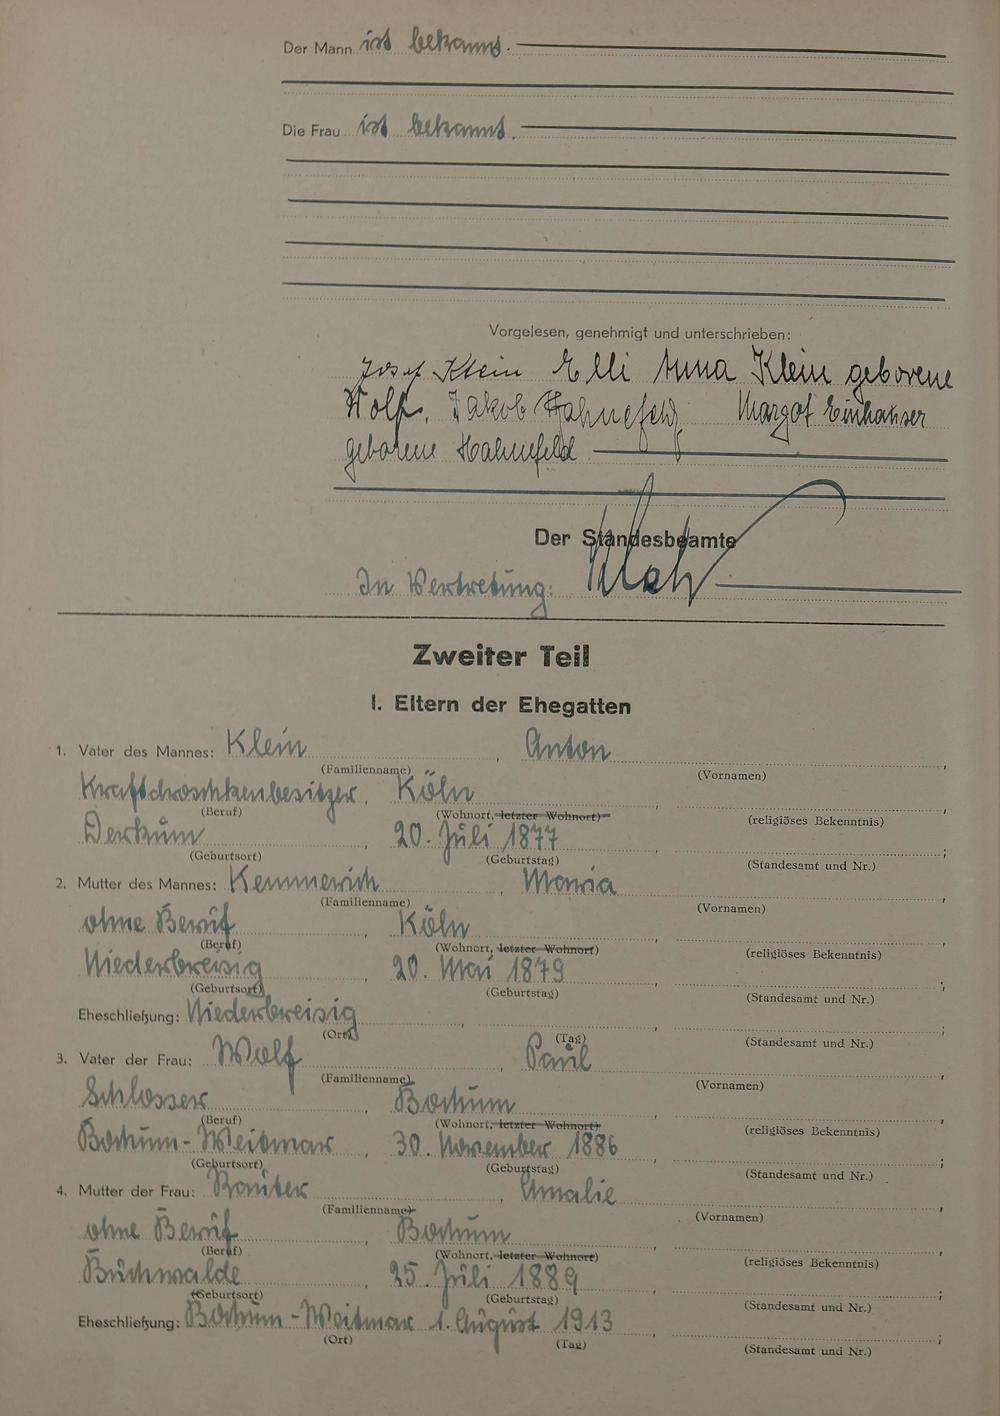 Der Mann ist bekannt.
Die Frau ist bekannt.
Vorgelesen, genehmigt und unterschrieben:
Josef Klein Elli Anna Klein geborene
Wolf. Jakob Hahnefeld Margot Einhauser
geborene Hahnefeld
Der Standesbeamte
In Vertretung:
Zweiter Teil
I. Eltern der Ehegatten
1. Vater des Mannes: Klein, Anton,
(Familienname) (Vornamen)
Kraftdroschkenbesitzer, Köln,
(Beruf) (Wohnort, letzter Wohnort) (religiöses Bekenntnis)
Derkum, 20. Juli 1877, ;
(Geburtsort) (Geburtstag) (Standesamt und Nr.)
2. Mutter des Mannes: Kemmerich, Maria,
(Familienname) (Vornamen)
ohne Beruf, Köln,
(Beruf) (Wohnort, letzter Wohnort) (religiöses Bekenntnis)
Niederbreisig, 20. Mai 1879, ;
(Geburtsort) (Geburtstag) (Standesamt und Nr.)
Eheschließung: Niederbreisig, , ;
(Ort) (Tag) (Standesamt und Nr.)
3. Vater der Frau: Wolf, Paul,
(Familienname) (Vornamen)
Schlosser, Bochum,
(Beruf) (Wohnort, letzter Wohnort) (religiöses Bekenntnis)
Bochum-Weitmar, 30. November 1886, ;
(Geburtsort) (Geburtstag) (Standesamt und Nr.)
4. Mutter der Frau: , Amalie,
(Familienname) (Vornamen)
ohne Beruf, Bochum,
(Beruf) (Wohnort, letzter Wohnort) (religiöses Bekenntnis)
Buchwalde, 25. Juli 1889, ;
(Geburtsort) (Geburtstag) (Standesamt und Nr.)
Eheschließung: Bochum-Weitmar 1. August 1913, ;
(Ort) (Tag) (Standesamt und Nr.)